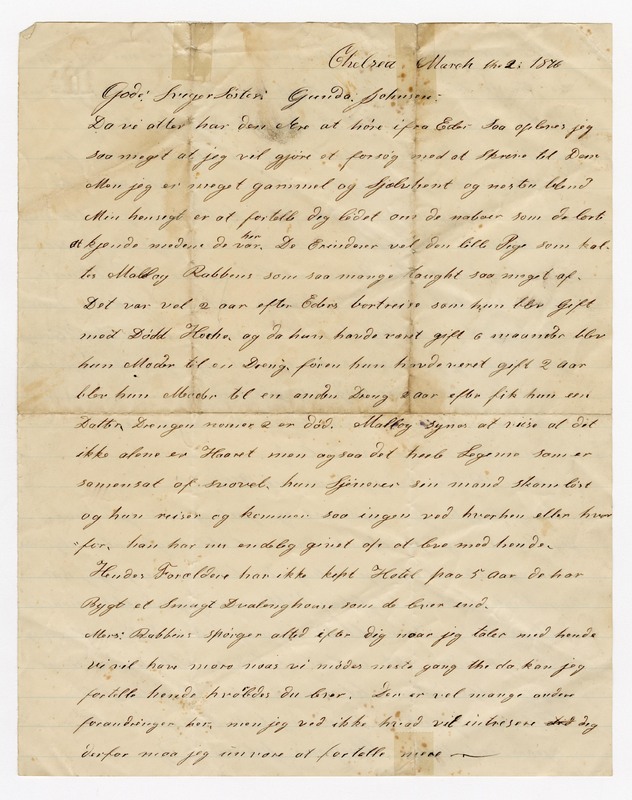 Chelsea March the 2: 1876
Gode! Sviger Søster! Gunda Johnsen:
Da vi atter har den Ære at høre ifra Eder saa opleves jeg
saa meget at jeg vil gjøre et forsøg med at skrive til Dem
Men jeg er meget gammel og og næsten blend
Min hensegt er at fortelle deg lidet om de naboer som de lert
at kjende medens de var her. De Erinderer vel den lille Pige som kal-
tes Malloy Rabbens som saa mange taught saa meget af.
Det var vel 2 aar efter Eders bortreise som hun blev Gift
med Dodd og da hun havde veret gift 6 maander blev
hun Moder til en Dreng, føren hun havde veret gift 2 aar
blev hun Moeder til en anden Dreng 2 aar efter fik hun een
Datter, Drengen nomer 2 er død. Malloy synes at viise at det
ikke alene er Haaret men ogsaa det heele Legeme som er
samensat af svovel. hun sin mand skamløst
og hun reiser og kommer saa ingen ved hvorhen eller hvor
for, han har nu endeleg givet op at leve med hende.
Hendes Forældere har ikke kept Hotel paa 5 Aar de har
Bygt et Smagt Dvalenghouse som de lever end.
Mers: Rabbens spørger alted efter dig naar jeg taler med hende
vi vil have moro naas vi mødes neste gang the da kan jeg
fortelle hende hvoledes du lever. Der er vel mange andere
forandringer her, men jeg ved ikke hvad vil intresere deg
derfor maa jeg unvære at fortelle mere